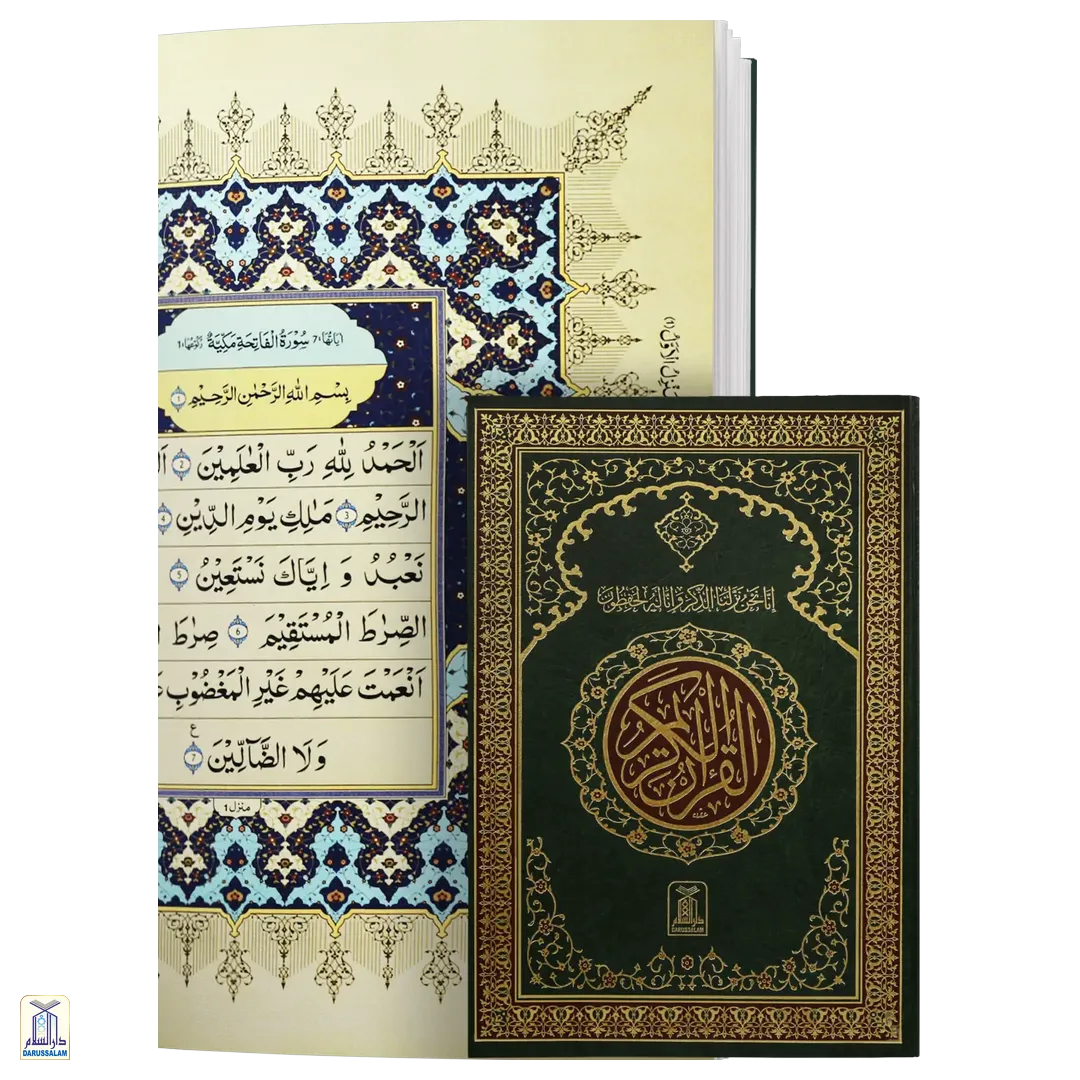 اٰيَاتُهَا ٧ سُوْرَةُ الْفَاتِحَةِ مَكِّيَّةٌ رُكُوْعُهَا ١
بِسْمِ اللّٰهِ الرَّحْمٰنِ الرَّحِيْمِ 1
اَلْحَمْدُ لِلّٰهِ رَبِّ الْعٰلَمِيْنَ 2
الرَّحِيْمِ 3 مٰلِكِ يَوْمِ الدِّيْنِ 4
نَعْبُدُ وَ اِيَّاكَ نَسْتَعِيْنُ 5
الصِّرٰطَ الْمُسْتَقِيْمَ 6 صِرٰطَ
اَنْعَمْتَ عَلَيْهِمْ غَيْرِ الْمَغْضُوْبِ
وَلَا الضَّآلِّيْنَ 7
ع
منزل 1
اِنَّا نَحْنُ نَزَّلْنَا الذِّكْرَ وَاِنَّا لَهٗ لَحٰفِظُوْنَ
القُرآن الكريم
دار السلام
DARUSSALAM
دار السلام
DARUSSALAM